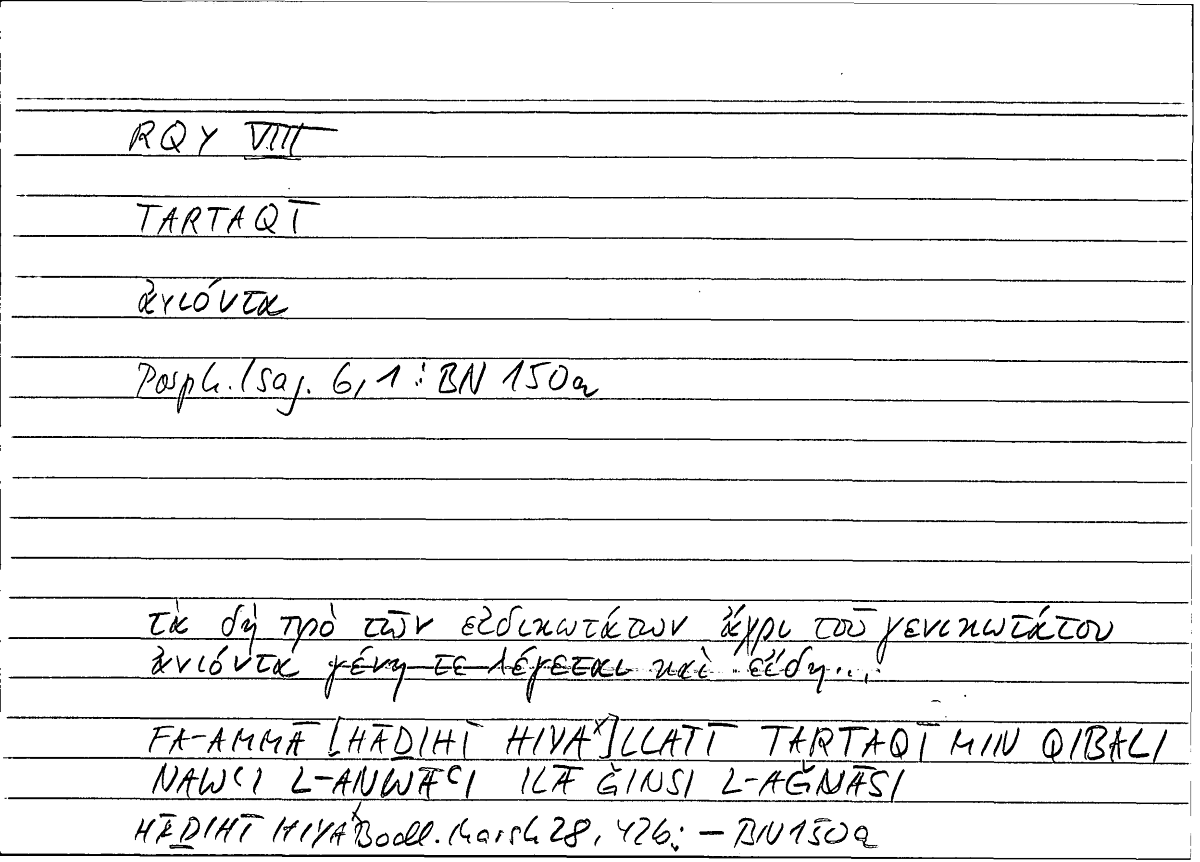 RQY VIII
TARTAQĪ
ἀνιόντα
Porph. Isag. 6,1 : BN 150a
τὰ δὴ πρὸ τῶν εἰδικωτάτων ἄχρι τοῦ γενικωτάτου
ἀνιόντα γένη τε λέγεται καὶ εἴδη...;
FA-AMMĀ [HĀḎIHĪ HIYAˣ]LLATĪ TARTAQĪ MIN QIBALI
NAWʿI L-ANWĀʿI ILĀ ǦINSI L-AǦNĀSI
HĀḎIHĪ HIYAˣ Bodl. Marsh 28, 42b; – BN 150a